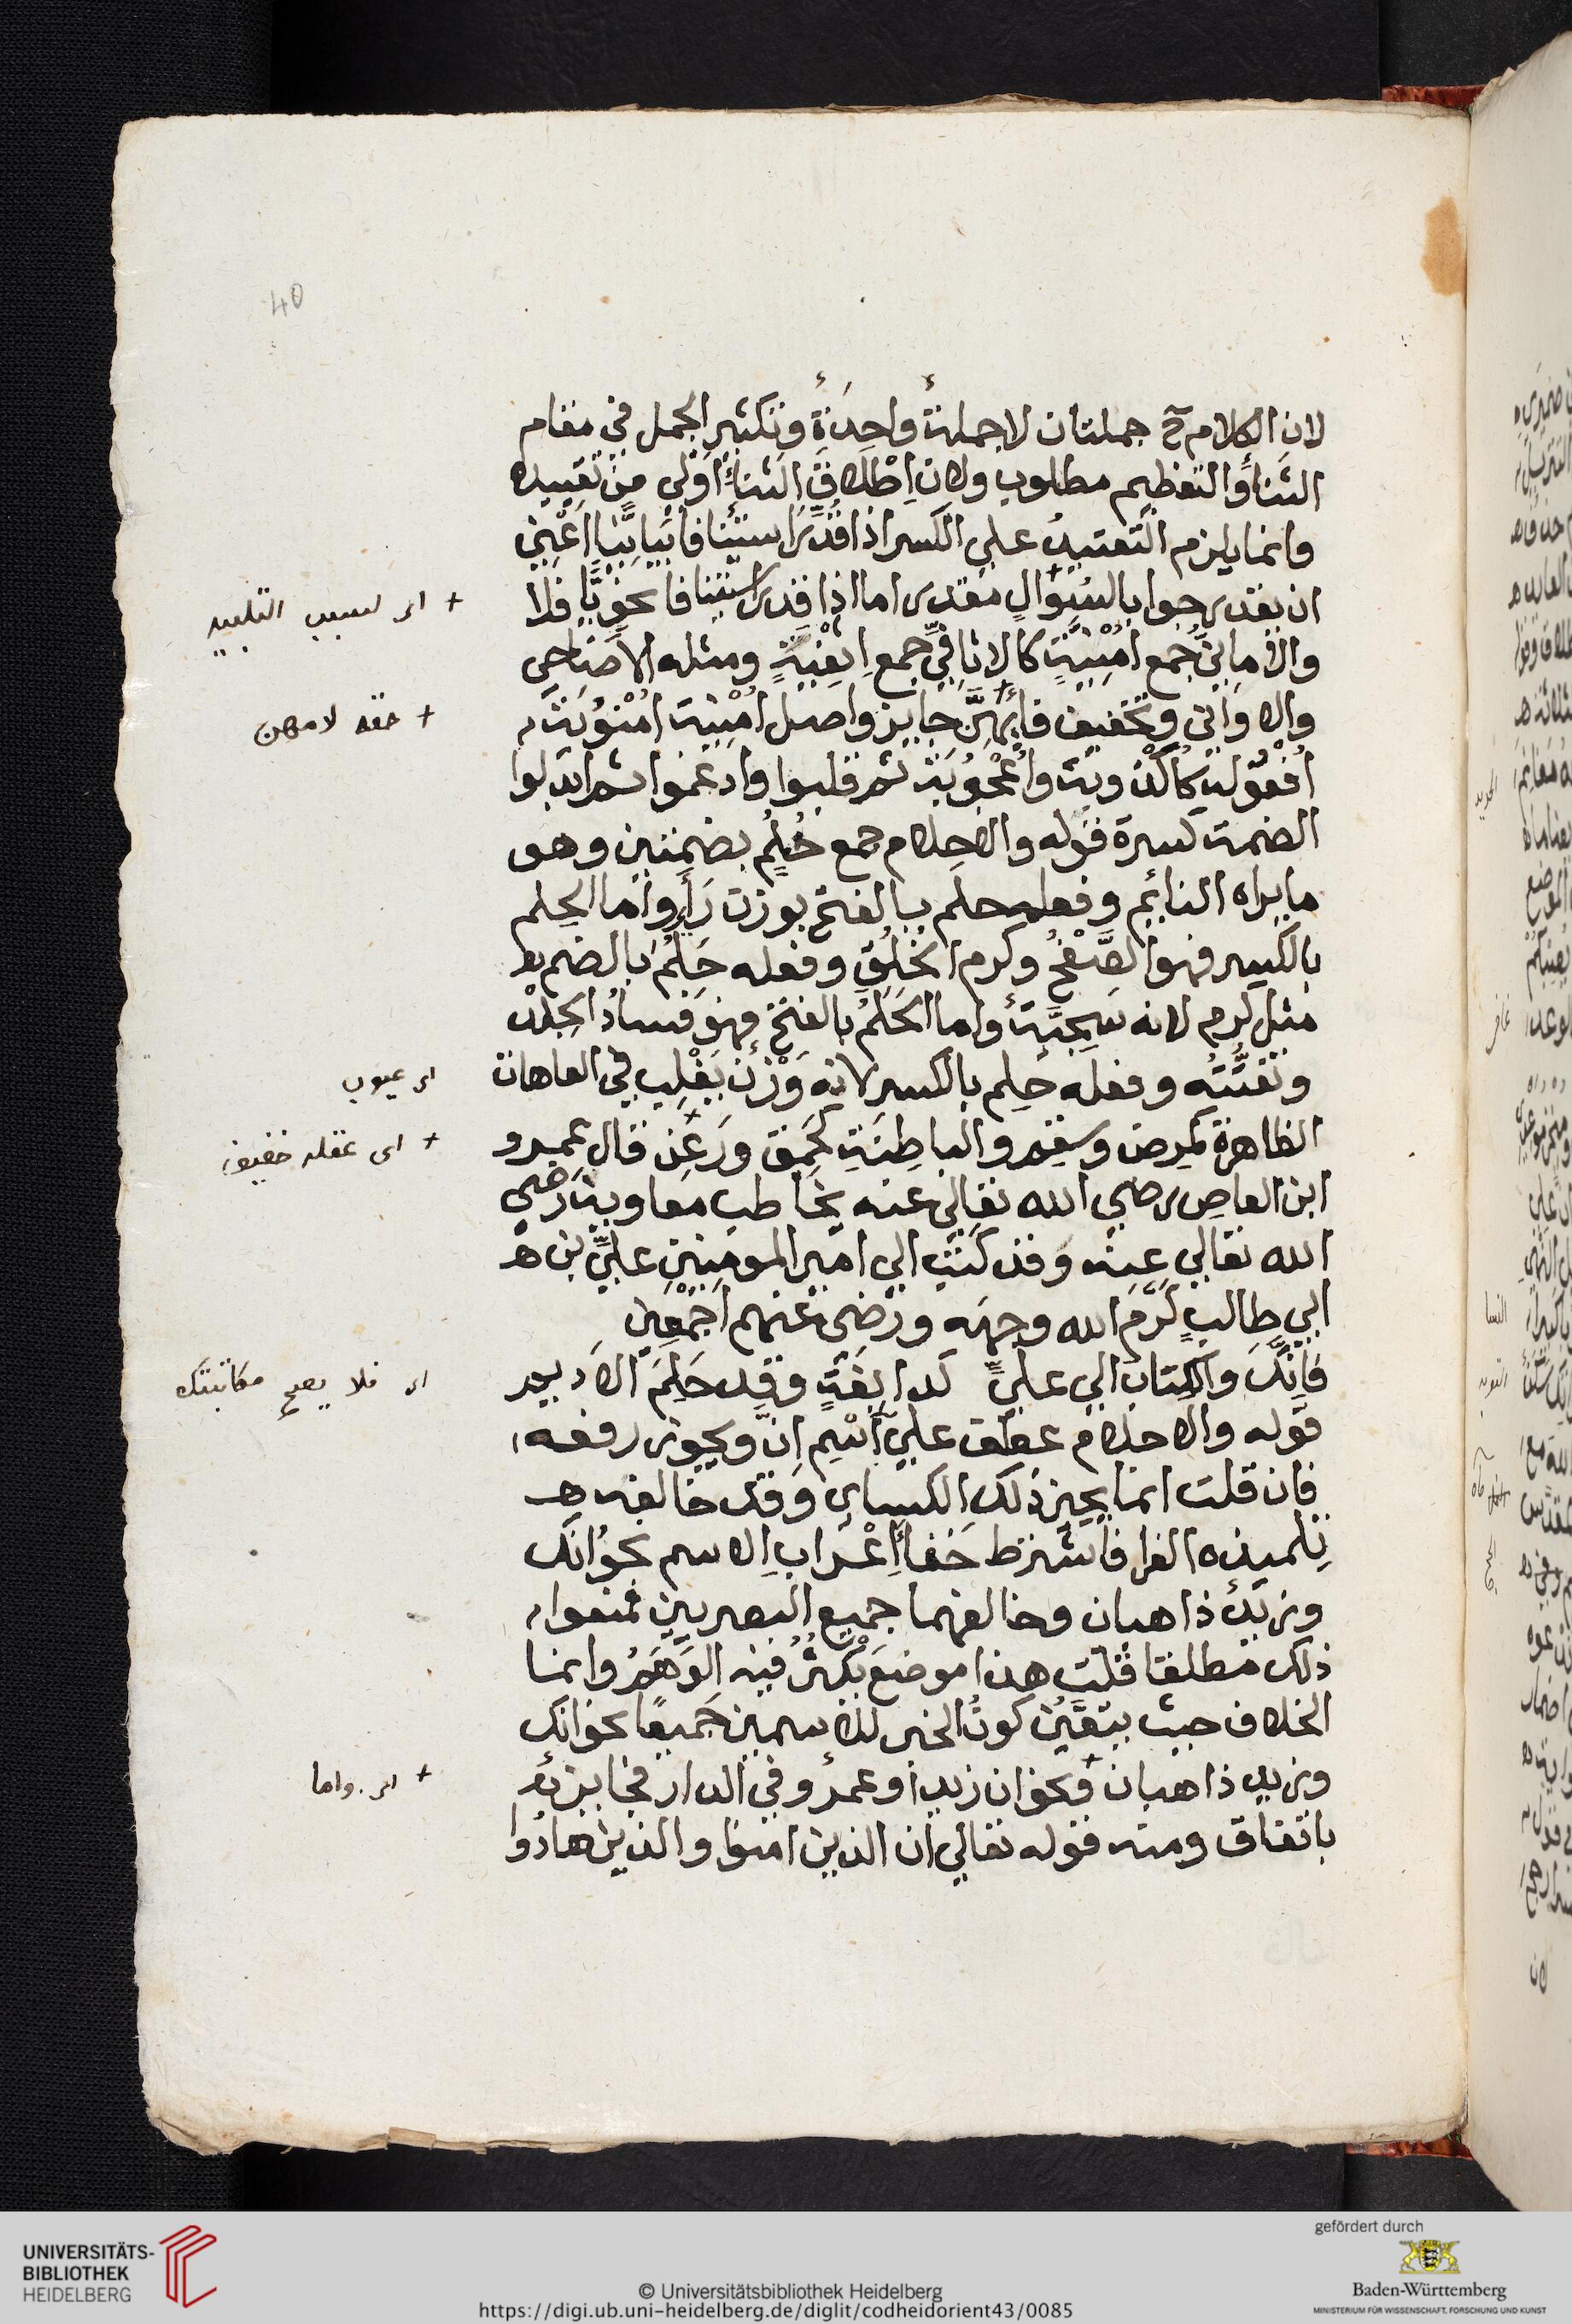 40
لان الكلام ح جملتان لا جملة واحدة وتكثير الجمل في مقام
الثناء والتعظيم مطلوب ولان اطلاق الثناء اولي من تقييده
وانما يلزم التقييد علي الكسر اذا قدر استينافا بيانيا اعني
ان يقدر جوابا لسوال مقدر اما اذا قدر استينافا نحويا فلا
+ اى لسبب التلبيه
والاماني جمع امنية كالاثافي جمع اثفية ومثله الاضاحي
والاواني وتخفيف يائهن جايز واصل امنية امنوية
+ حقه لامهن
افعولة كاكذوبة واعجوبة ثم قلبوا وادغموا ثم ابدلوا
الضمة كسرة قوله والاحلام جمع حُلُم بضمتين وهو
ما يراه النائم وفعله حلم بالفتح بوزن رأى واما الحلم
بالكسر فهو الصفح وكرم الخلق وفعله حلم بالضم
مثل كرم لانه سجية واما الحلم بالفتح فهو فساد الجلد
وتفتته وفعله حلم بالكسر لانه وزن يغلب في العاهات
اى عيوب
الظاهرة كمرض وسقم والباطنة كحمق ورعن قال عمرو
+ اى عقله خفيف
ابن العاص رضي الله تعالى عنه يخاطب معاوية رضي
الله تعالي عنه وقد كتب الي امير المومنين علي بن
ابي طالب كرم الله وجهه ورضى عنهم اجمعين
فانك والكتاب الي علي كدابغة وقد حلم الاديم
اى فلا يصح مكاتبتك
قوله والاحلام عطف علي اسم ان ويجوز رفعه
فان قلت انما يجيز ذلك الكساى وقد خالفه
تلميذه الفرا فاشترط خفاء اعراب الاسم نحو انك
وزيد ذاهبان وخالفهما جميع البصريين فمنعوا
ذلك مطلقا قلت هذا موضع يكثر فيه الوهم وانما
الخلاف حيث يتعين كون الخبر للاسمين جميعا نحو انك
وزيد ذاهبان ونحو ان زيدا وعمرو في الدار فجايز
+ اى واما
باتفاق ومنه قوله تعالي ان الذين امنوا والذين هادوا
UNIVERSITÄTS-
BIBLIOTHEK
HEIDELBERG
© Universitätsbibliothek Heidelberg
https://digi.ub.uni-heidelberg.de/diglit/codheidorient43/0085
gefördert durch
Baden-Württemberg
MINISTERIUM FÜR WISSENSCHAFT, FORSCHUNG UND KUNST